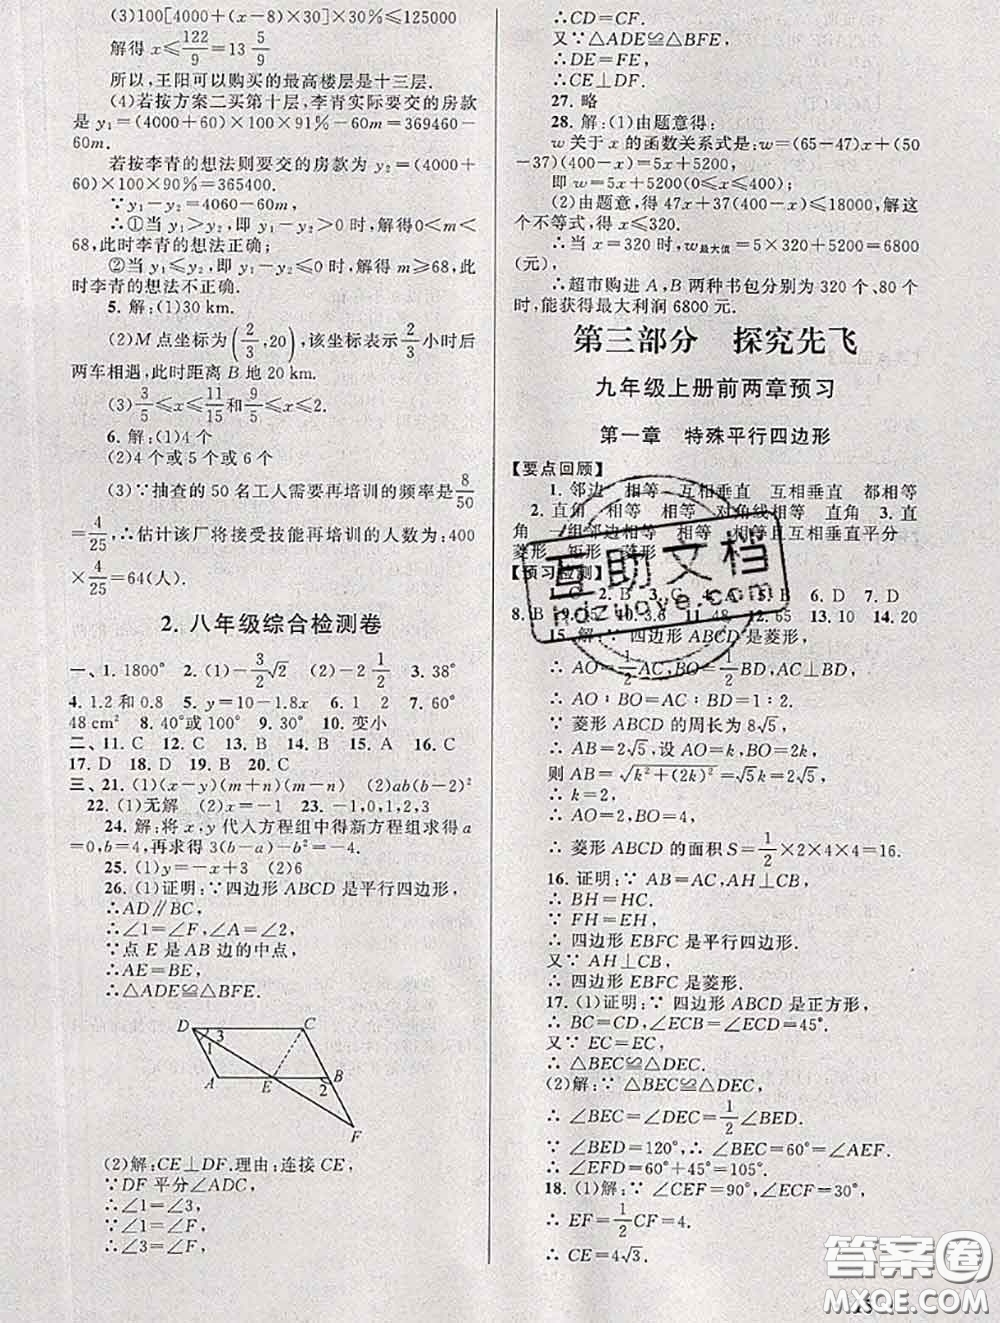 (3)100[4000+(x-8)×30]×30%≤125000
解得 x≤122/9=13 5/9
所以,王阳可以购买的最高楼层是十三层.
(4)若按方案二买第十层,李青实际要交的房款
是 y₁=(4000+60)×100×91%-60m=369460-
60m.
若按李青的想法则要交的房款为 y₂=(4000+
60)×100×90%=365400.
∵y₁-y₂=4060-60m
∴①当 y₁>y₂,即 y₁-y₂>0 时,解得0<m<
68,此时李青的想法正确;
②当 y₁≤y₂,即 y₁-y₂≤0 时,解得 m≥68,此
时李青的想法不正确.
5. 解:(1)30 km.
(2)M 点坐标为(2/3,20),该坐标表示2/3小时后
两车相遇,此时距离 B 地 20 km.
(3)3/5≤x≤11/15和9/5≤x≤2.
6. 解:(1)4个
(2)4个或5个或6个
(3)∵抽查的50名工人需要再培训的频率是8/50
=4/25,∴估计该厂将接受技能再培训的人数为;400
×4/25=64(人).
2. 八年级综合检测卷
一、1. 1800° 2. (1)-3/2√2 (2)-2 1/2 3. 38°
4. 1.2 和 0.8 5. y=10-1.8x 6. 1 2 7. 60°
48 cm² 8. 40°或100° 9. 30° 10. 变小
二、11. C 12. C 13. B 14. B 15. A 16. C
17. D 18. D 19. B 20. C
三、21. (1)(x-y)(m+n)(m-n) (2)ab(b-2)²
22. (1)无解 (2)x=-1 23. -1,0,1,2,3
24. 解;将 x,y 代入方程组中得新方程组求得 a
=0,b=4,再求得 3(b-a)-b²=-4.
25. (1)y=-x+3 (2)6
26. (1)证明:∵四边形 ABCD 是平行四边形,
∴AD∥BC,
∴∠1=∠F,∠A=∠2,
∵点 E 是 AB 边的中点,
∴AE=BE,
∴△ADE≌△BFE.
D 3 C
1
A E 2 B
F
(2)解;CE⊥DF.理由;连接 CE,
∵DF 平分∠ADC,
∴∠1=∠3,
∵∠1=∠F,
∴∠3=∠F,
∴CD=CF.
又∵△ADE≌△BFE,
∴DE=FE,
∴CE⊥DF.
27. 略
28. 解:(1)由题意得:
w 关于 x 的函数关系式是:w=(65-47)x+(50
-37)(400-x)=5x+5200,
即 w=5x+5200(0≤x≤400);
(2)由题意,得 47x+37(400-x)≤18000,解这
个不等式,得 x≤320.
∴当 x=320 时,w最大值=5×320+5200=6800
(元),
∴超市购进 A,B 两种书包分别为 320 个、80 个
时,能获得最大利润 6800 元.
第三部分 探究先飞
九年级上册前两章预习
第一章 特殊平行四边形
【要点回顾】
1. 邻边 相等 互相垂直 互相垂直 都相等
2. 直角 相等 相等 对角线相等 直角 3. 直
角 一组邻边相等 相等 相等且互相垂直平分
菱形 矩形 菱形
【预习检测】
2. B 3. C 4. A 5. B 6. D 7. D
8. B 10. 3.6 11. 48 12. 65 13. 10 14. 20
15. 解:∵ 四边形 ABCD 是菱形,
∴ AO=1/2AC,BO=1/2BD,AC⊥BD,
∴ AO∶BO=AC∶BD=1∶2.
∵ 菱形 ABCD 的周长为 8√5,
∴ AB=2√5,设 AO=k,BO=2k,
则 AB=√(k²+(2k)²)=√5k=2√5,
∴ k=2,
∴ AO=2,BO=4,
∴ 菱形 ABCD 的面积 S=1/2×2×4×4=16.
16. 证明:∵ AB=AC,AH⊥CB,
∴ BH=HC.
∵ FH=EH,
∴ 四边形 EBFC 是平行四边形.
又∵ AH⊥CB,
∴ 四边形 EBFC 是菱形.
17. (1)证明:∵ 四边形 ABCD 是正方形,
∴ BC=CD,∠ECB=∠ECD=45°.
又∵ EC=EC,
∴ △BEC≌△DEC.
(2)解:∵ △BEC≌△DEC,
∴ ∠BEC=∠DEC=1/2∠BED.
∵ ∠BED=120°,∴ ∠BEC=60°=∠AEF.
∴ ∠EFD=60°+45°=105°.
18. (1)解:∵ ∠CEF=90°,∠ECF=30°,
∴ EF=1/2CF=4.
∴ CE=4√3.
互助文档
hdzuoye.com
答案圈
MXQE.COM